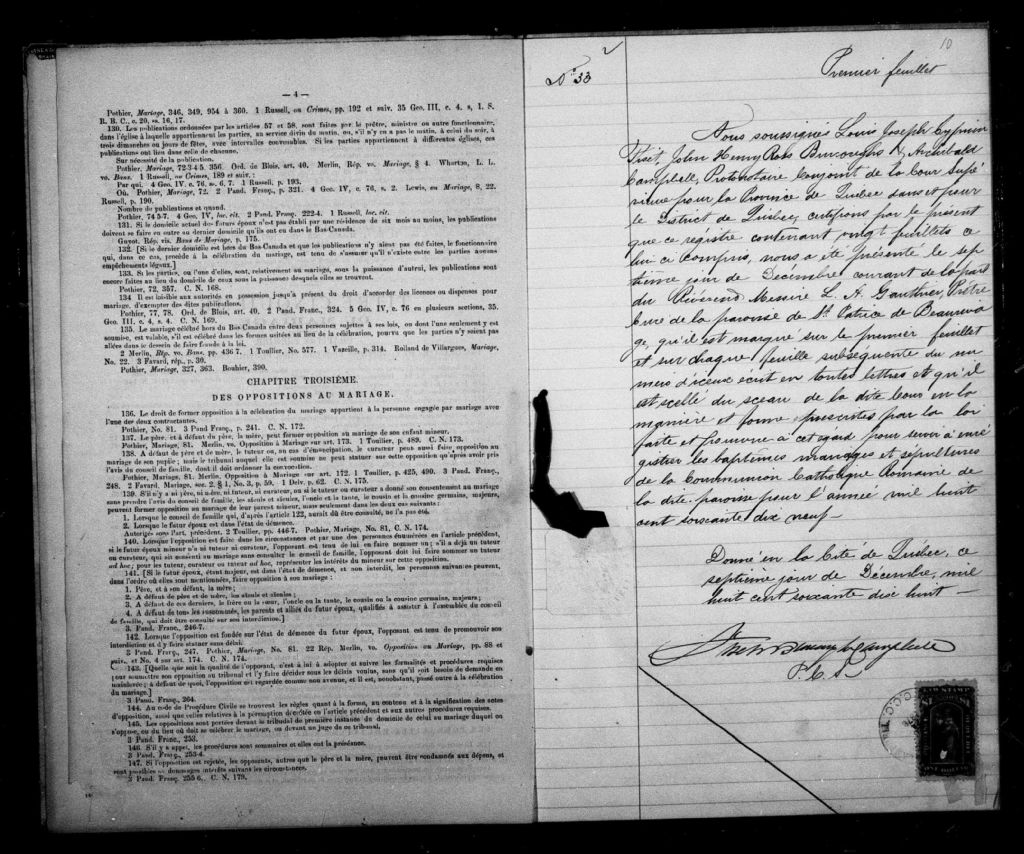 — 4 —
Pothier, Mariage, 346, 349, 954 à 360. 1 Russell, on Crimes, pp. 192 et suiv. 35 Geo. III, c. 4. s, I. S.
R. B. C., c. 20, ss. 16, 17.
130. Les publications ordonnées par les articles 57 et 58, sont faites par le prêtre, ministre ou autre fonctionnaire,
dans l'église à laquelle appartiennent les parties, au service divin du matin, ou, s'il n'y en a pas le matin, à celui du soir, à
trois dimanches ou jours de fêtes, avec intervalles convenables. Si les parties appartiennent à différentes églises, ces
publications ont lieu dans celle de chacune.
Sur nécessité de la publication.
Pothier, Mariage, 72-3 4 5. 356. Ord. de Blois, art. 40. Merlin, Rép. vo. Mariage, § 4. Wharton, L. L.
vo. Bans. 1 Russell, on Crimes, 189 et suiv.:
Par qui. 4 Geo. IV. c. 76, s. 6, 7. 1 Russell, p. 193.
Où. Pothier, Mariage, 72. 2 Pand. Franç., p. 321. 4 Geo. IV, c. 76, s. 2. Lewis, on Mariage, 8, 22.
Russell, p. 190.
Nombre de publications et quand.
Pothier, 74 5-7. 4 Geo. IV, loc. cit. 2 Pand. Franç., 222-4. 1 Russell, loc. cit.
131. Si le domicile actuel des futurs époux n'est pas établi par une résidence de six mois au moins, les publications
doivent se faire en outre au dernier domicile qu'ils ont eu dans le Bas-Canada.
Guyot. Rép. vis. Bans de Mariage, p. 175.
132. [Si le dernier domicile est hors du Bas-Canada et que les publications n'y aient pas été faites, le fonctionnaire
qui, dans ce cas, procède à la célébration du mariage, est tenu de s'assurer qu'il n'existe entre les parties aucuns
empêchements légaux.]
133. Si les parties, ou l'une d'elles, sont, relativement au mariage, sous la puissance d'autrui, les publications sont
encore faites au lieu du domicile de ceux sous la puissance desquels elles se trouvent.
Pothier, 72, 357. C. N. 168.
134 Il est loisible aux autorités en possession jusqu'à présent du droit d'accorder des licences ou dispenses pour
mariage, d'exempter des dites publications.
Pothier, 77, 78. Ord. de Blois, art. 40. 2 Pand. Franc., 324. 5 Geo. IV, c. 76 en plusieurs sections, 35.
Geo. III, c. 4, s. 4. C. N. 169.
135. Le mariage célébré hors du Bas Canada entre deux personnes sujettes à ses lois, ou dont l'une seulement y est
soumise, est valable, s'il est célébré dans les formes usitées au lieu de la célébration, pourvu que les parties n'y soient pas
allées dans le dessein de faire fraude à la loi.
2 Merlin, Rép. vo. Bans, pp. 436 7. 1 Toullier, No. 577. 1 Vazeille, p. 314. Rolland de Villargues, Mariage,
No. 22. 3 Favard, rép., p. 39.
Pothier, Mariage, 327, 363. Bouhier, 390.
CHAPITRE TROISIÈME.
DES OPPOSITIONS AU MARIAGE.
136. Le droit de former opposition à la célébration du mariage appartient à la personne engagée par mariage avec
l'une des deux contractantes.
Pothier, No. 81. 3 Pand Franç., p. 241. C. N. 172.
137. Le père, et à défaut du père, la mère, peut former opposition au mariage de son enfant mineur.
Pothier, Mariage, 81. Merlin, vo. Opposition à Mariage sur art. 173. 1 Touillier, p. 489. C. N. 173.
138. A défaut de père et de mère, le tuteur ou, en cas d'émancipation, le curateur peut aussi faire opposition au
mariage de son pupille; mais le tribunal auquel elle est soumise ne peut statuer sur cette opposition qu'après avoir pris
l'avis du conseil de famille, dont il doit ordonner la convocation.
Pothier, Mariage, 81. Merlin, Opposition à Mariage sur art. 172. 1 Touillier, p. 425, 490. 3 Pand. Franç.,
248. 2 Favard, Mariage, sec. 2. § 1, No. 3, p. 59. 1 Delv. p. 62. C. N. 175.
139. S'il n'y a ni père, ni mère, ni tuteur, ni curateur, ou si le tuteur ou curateur a donné son consentement au mariage
sans prendre l'avis du conseil de famille, les aïeuls et aïeules, l'oncle et la tante, le cousin et la cousine germains, majeurs,
peuvent former opposition au mariage de leur parent mineur, mais seulement dans les deux cas suivants:
1. Lorsque le conseil de famille qui, d'après l'article 122, aurait dû être consulté, ne l'a pas été.
2. Lorsque le futur époux est dans l'état de démence.
Autorités sous l'art. précédent. 2 Touiller, pp. 446-7. Pothier, Mariage, No. 81, C. N. 174.
140. Lorsque l'opposition est faite dans les circonstances et par une des personnes énumérées en l'article précédent,
si le futur époux mineur n'a ni tuteur ni curateur, l'opposant est tenu de lui en faire nommer un; s'il a déjà un tuteur
ou curateur, qui ait consenti au mariage sans consulter le conseil de famille, l'opposant doit lui faire nommer un tuteur
ad hoc; pour les tuteur, curateur ou tuteur ad hoc, représenter les intérêts du mineur sur cette opposition.
141. [Si le futur époux, étant majeur, est dans l'état de démence, et non interdit, les personnes suivantes peuvent,
dans l'ordre où elles sont mentionnées, faire opposition à son mariage:
1. Père, et à son défaut, la mère;
2. A défaut de père et de mère, les aïeuls et aïeules;
3. A défaut de ces derniers, le frère ou la sœur, l'oncle ou la tante, le cousin ou la cousine germains, majeurs;
4. A défaut de tous les susnommés, les parents et alliés du futur époux, qualifiés à assister à l'assemblée du conseil
de famille, qui doit être consulté sur son interdiction.]
3. Pand. Franç., 246-7.
142. Lorsque l'opposition est fondée sur l'état de démence du futur époux, l'opposant est tenu de promouvoir son
interdiction et d'y faire statuer sans délai.
3 Pand. Franç., 247. Pothier, Mariage, No. 81. 22 Rép. Merlin, vo. Opposition au Mariage, pp. 88 et
suiv., et No. 4 sur art. 174. C. N. 174.
143. [Quelle que soit la qualité de l'opposant, c'est à lui à adopter et suivre les formalités et procédures requises
pour soumettre son opposition au tribunal et l'y faire décider sous les délais voulus, sans qu'il soit besoin de demande en
mainlevée; à défaut de quoi, l'opposition est regardée comme non avenue, et il est, nonobstant, passé outre à la célébration
du mariage.]
3 Pand. Franç., 264.
144. Au code de Procédure Civile se trouvent les règles quant à la forme, au contenu et à la signification des actes
d'opposition, ainsi que celles relatives à la péremption décrétée en l'article précédent et aux autres procédures requises.
145. Les oppositions sont portées devant le tribunal de première instance du domicile de celui au mariage duquel on
s'oppose, ou du lieu où doit se célébrer le mariage, ou devant un juge de ce tribunal.
3 Pand. Franç., 253.
146. S'il y a appel, les procédures sont sommaires et elles ont la préséance.
3 Pand. Franç., 253-4.
147. Si l'opposition est rejetée, les opposants, autres que le père et la mère, peuvent être condamnés aux dépens, et
sont passibles de dommages-intérêts suivant les circonstances.
3 Pand. Franç. 255 6. C. N. 179.
10
2
No 33
Premier feuillet
Nous soussigné Louis Joseph Cyprien
Fiset, John Henry Ross Burroughs & Archibald
Campbell, Protonotaire Conjoint de la Cour Supé
rieure pour la Province de Québec dans et pour
le District de Québec, certifions par le présent
que ce registre contenant vingt feuillets ce
lui ci compris, nous a été présenté le sep
tième jour de Décembre courant de la part
du Révérend Messire L. A. Gauthier, Prêtre
Curé de la paroisse de St. Patrice de Beauriva
ge, qu'il est marqué sur le premier feuillet
et sur chaque feuille subséquente du nu
mero d'iceux écrit en toutes lettres et qu'il
est scellé du sceau de la dite Cour en la
manière et forme prescrites par la loi
faite et pourvue à cet égard pour servir à enré
gistrer les baptêmes mariages et sépultures
de la Communion Catholique Romaine de
la dite paroisse pour l'année mil huit
cent soixante dix neuf—
Donné en la Cité de Québec, ce
septième jour de Décembre, mil
huit cent soixante dix huit —
Fiset Burroughs Campbell
P. C. S.
LAW STAMP
$1 $1
ONE DOLLAR